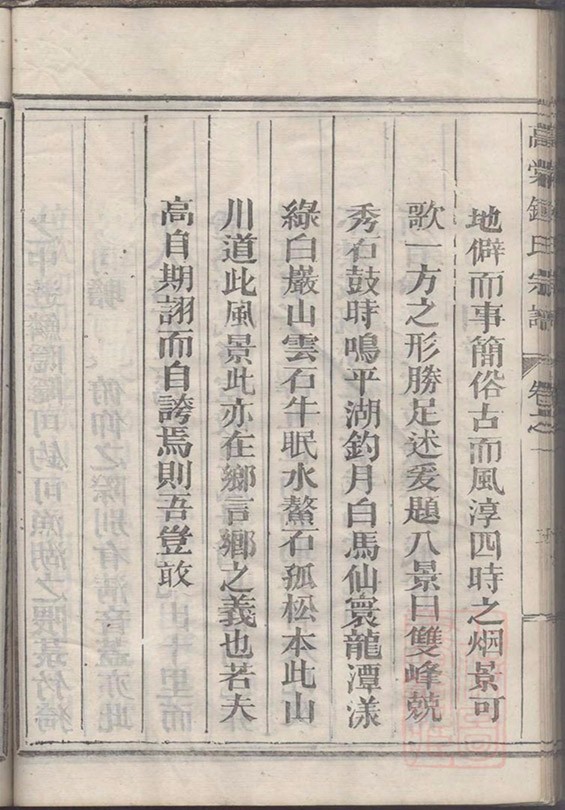 高 鍾氏宗譜 卷之一
地僻而事簡俗古而風淳四時之烟景可
歌一方之形勝足述爰題八景曰雙峰競
秀石鼓時鳴平湖釣月白馬仙寰龍潭漾
綠白巖山雲石牛眠水鰲石孤松本此山
川道此風景此亦在鄉言鄉之義也若夫
高自期詡而自誇焉則吾豈敢